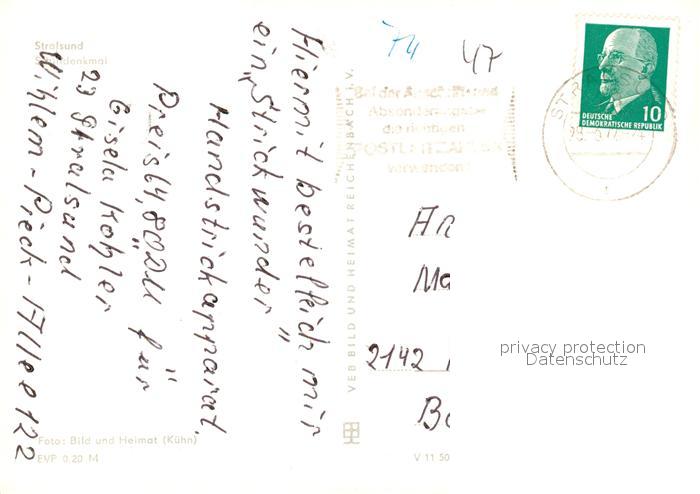 Stralsund
Schilldenkmal
Hiermit bestell ich mir
ein „Strickwunder"
Handstrickapparat
Preis 64,80DM für
Gisela Köhler
23 Stralsund
Wilhelm-Pieck-Allee 122
Foto: Bild und Heimat (Kühn)
EVP 0.20 M
VEB BILD UND HEIMAT REICHENBACH i. V.
V 11 50
74
47
Bei der
Absenderangabe
die richtigen
POSTLEITZAHLEN
verwenden
DEUTSCHE
DEMOKRATISCHE REPUBLIK
10
An
Ma
2142
privacy protection
Datenschutz